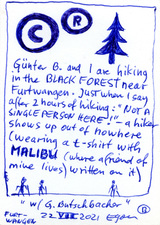 C R
Günter B. and I are hiking
in the BLACK FOREST near
Furtwangen. Just when I say
after 2 hours of hiking: "NOT A
SINGLE PERSON HERE!" – a hiker
shows up out of nowhere
(wearing a t-shirt with
MALIBU (where a friend of
mine lives) written on it)
"w/ G. Butschbacher"
FURT-
WANGEN 22 VIII 2021 Egon
R